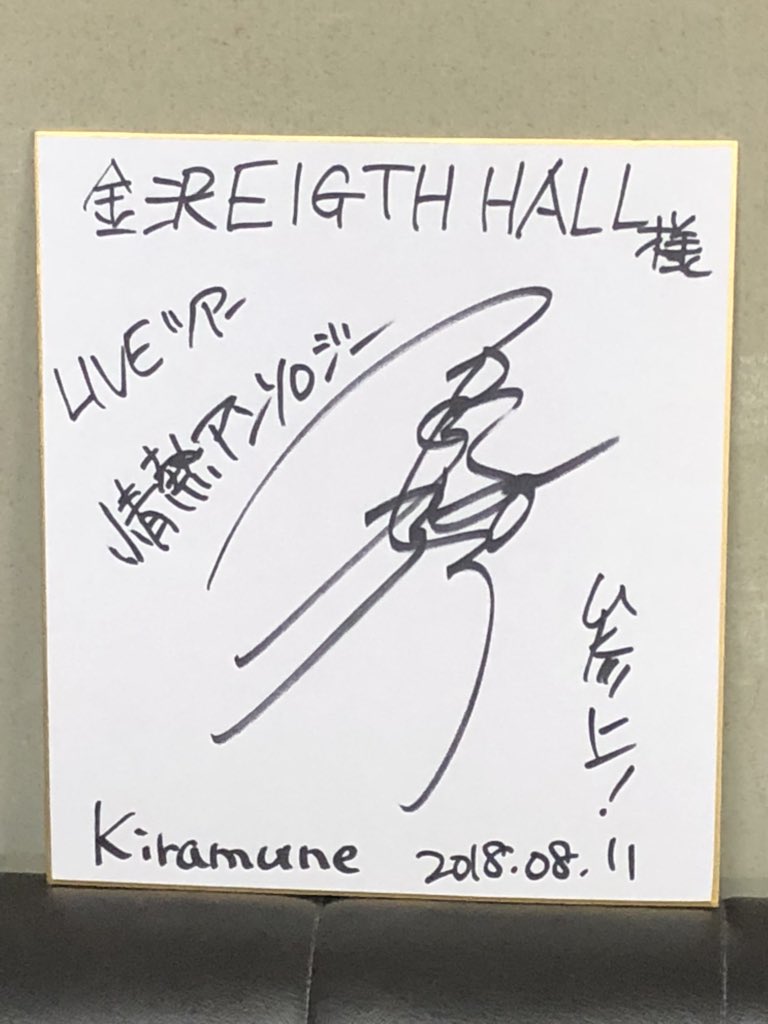 金沢EIGTH HALL様
LIVEツアー
情熱アンソロジー
参上!
Kiramune
2018.08.11